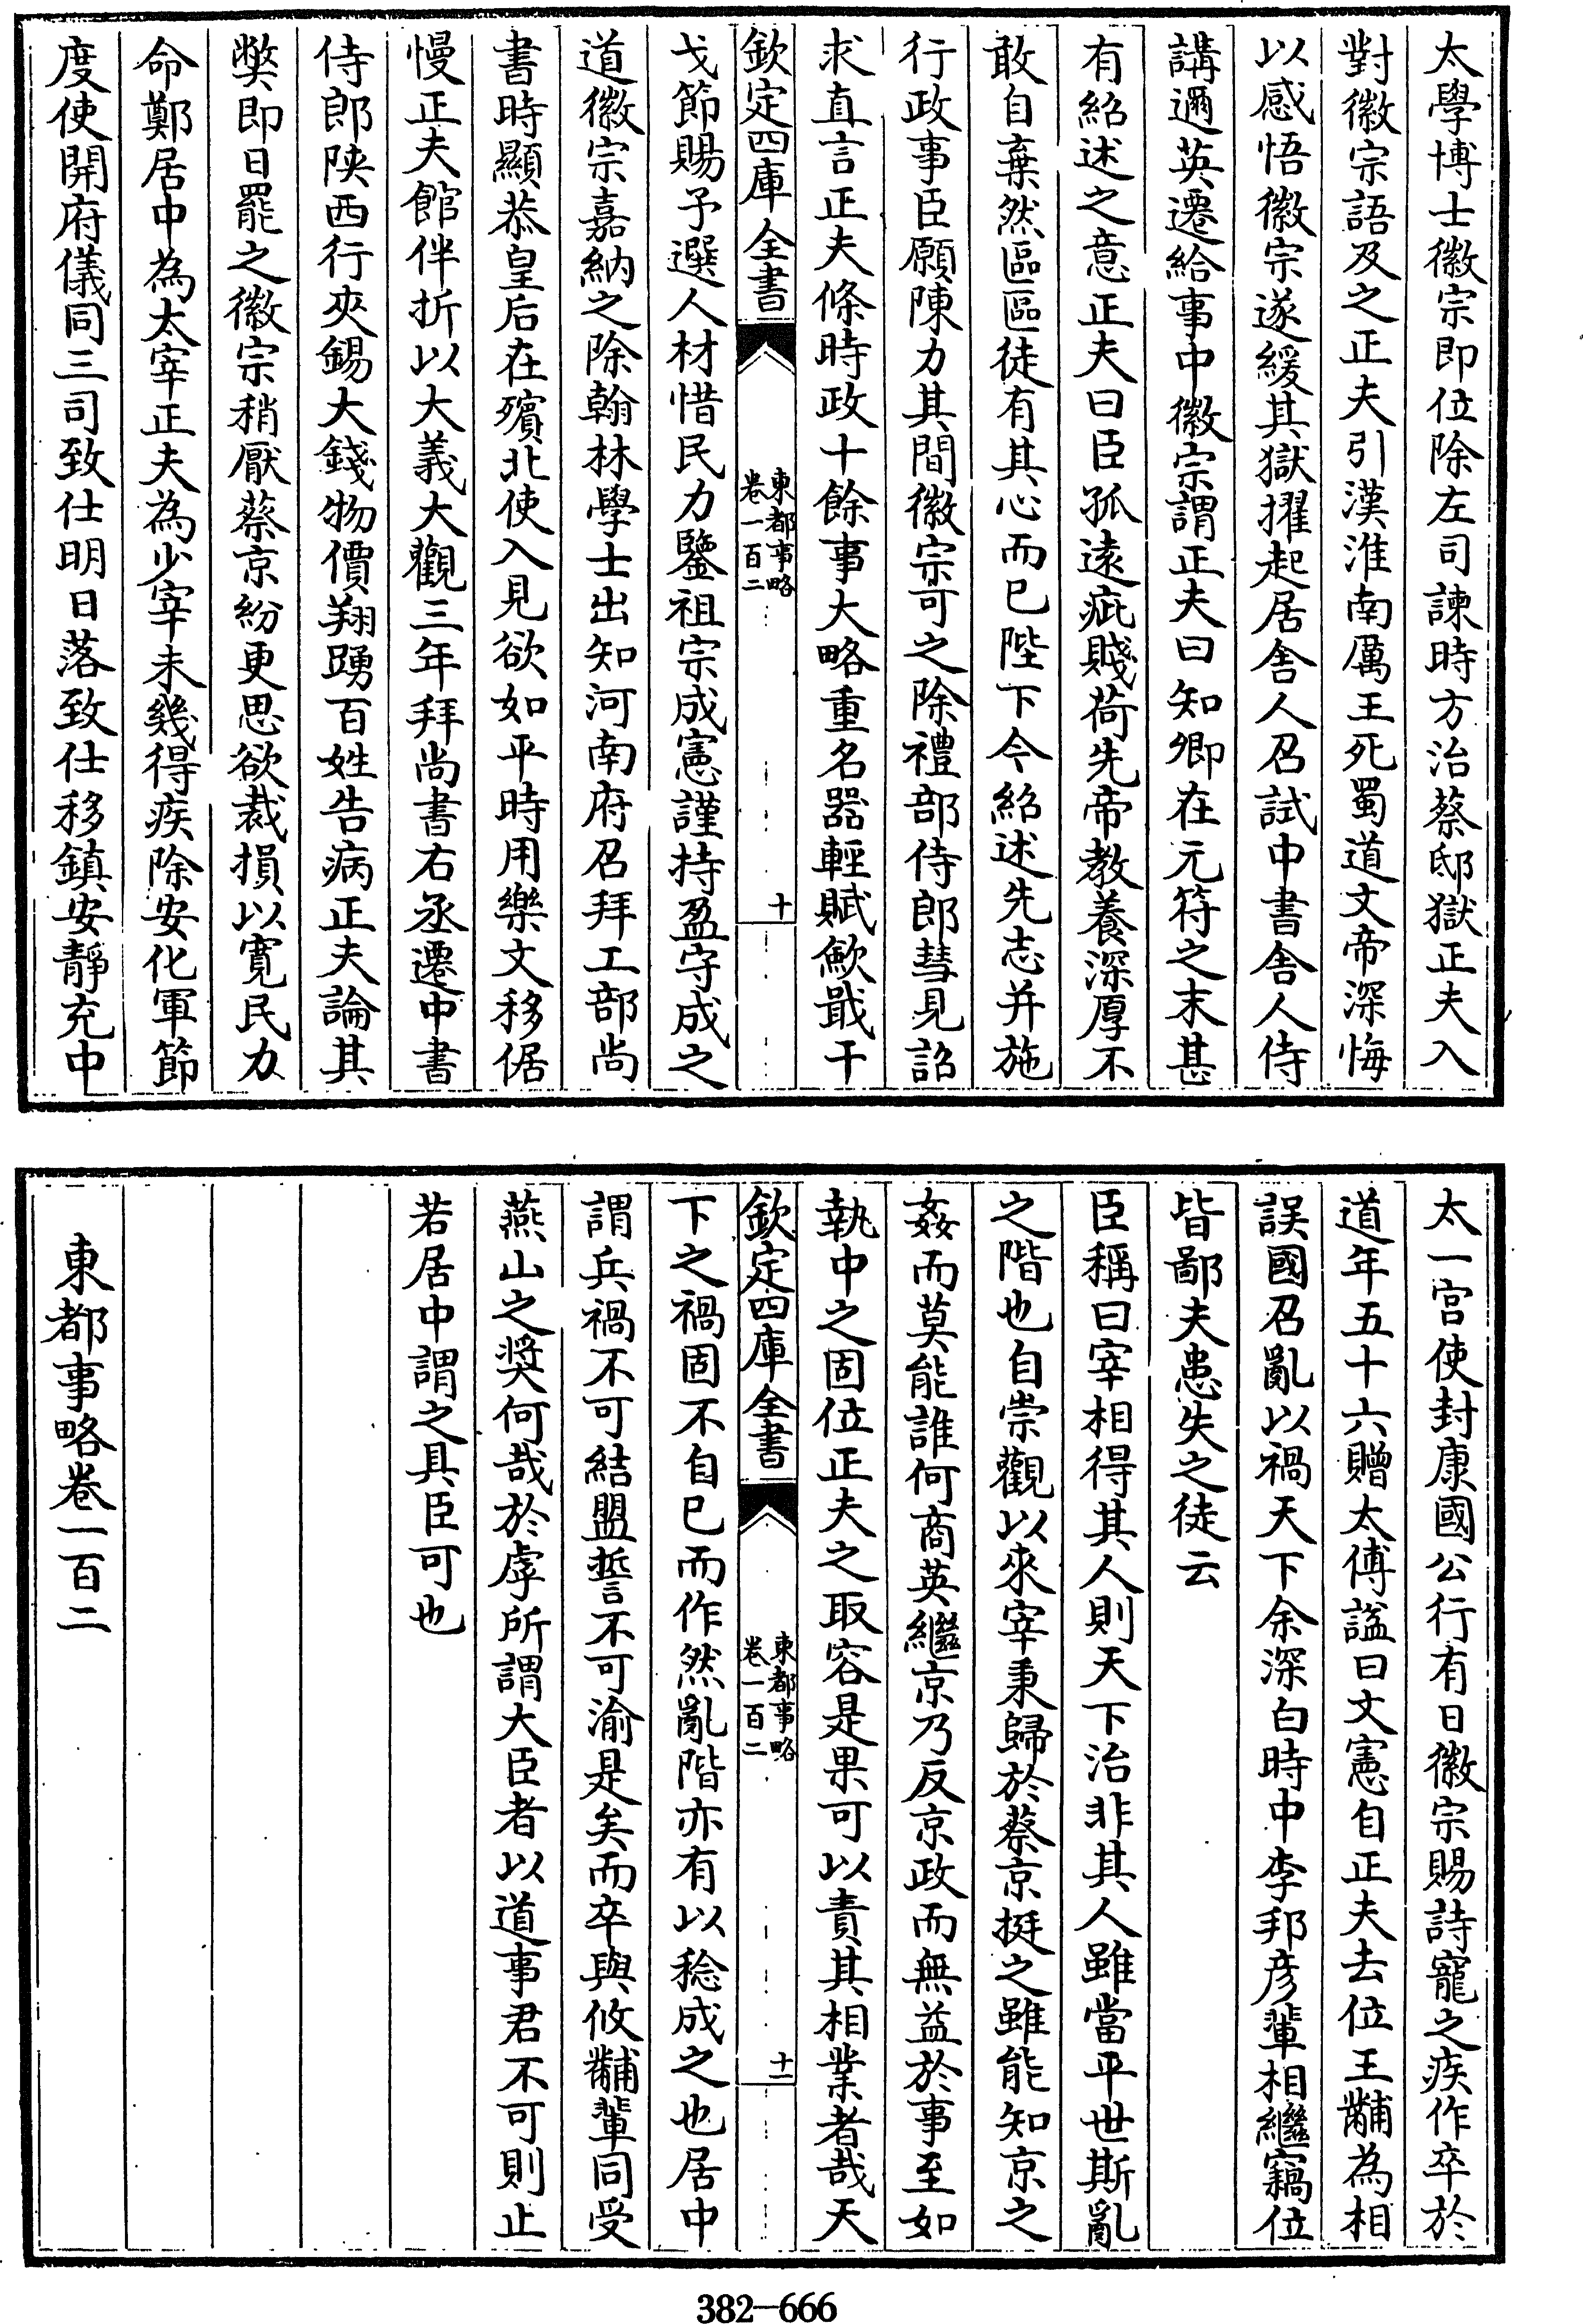 太學博士徽宗即位除左司諫時方治蔡邸獄正夫入
對徽宗語及之正夫引漢淮南厲王死蜀道文帝深悔
以感悟徽宗遂緩其獄擢起居舍人召試中書舍人侍
講邇英遷給事中徽宗謂正夫曰知卿在元符之末甚
有紹述之意正夫曰臣孤遠疵賤荷先帝教養深厚不
敢自棄然區區徒有其心而已陛下今紹述先志并施
行政事臣願陳力其間徽宗可之除禮部侍郎彗見詔
求直言正夫條時政十餘事大略重名器輕賦斂戢干
欽定四庫全書
東都事略
卷一百二
十
戈節賜予選人材惜民力鑒祖宗成憲謹持盈守成之
道徽宗嘉納之除翰林學士出知河南府召拜工部尚
書時顯恭皇后在殯北使入見欲如平時用樂文移倨
慢正夫館伴折以大義大觀三年拜尚書右丞遷中書
侍郎陝西行夾錫大錢物價翔踴百姓告病正夫論其
弊即日罷之徽宗稍厭蔡京紛更思欲裁損以寛民力
命鄭居中為太宰正夫為少宰未幾得疾除安化軍節
度使開府儀同三司致仕明日落致仕移鎮安靜充中
太一宫使封康國公行有日徽宗賜詩寵之疾作卒於
道年五十六贈太傅諡曰文憲自正夫去位王黼為相
誤國召亂以禍天下余深白時中李邦彦輩相繼竊位
皆鄙夫患失之徒云
臣稱曰宰相得其人則天下治非其人雖當平世斯亂
之階也自崇觀以來宰秉歸於蔡京挺之雖能知京之
姦而莫能誰何商英繼京乃反京政而無益於事至如
執中之固位正夫之取容是果可以責其相業者哉天
欽定四庫全書
東都事略
卷一百二
十一
下之禍固不自已而作然亂階亦有以稔成之也居中
謂兵禍不可結盟誓不可渝是矣而卒與攸黼輩同受
燕山之奬何哉於虖所謂大臣者以道事君不可則止
若居中謂之具臣可也
東都事略卷一百二
382—666